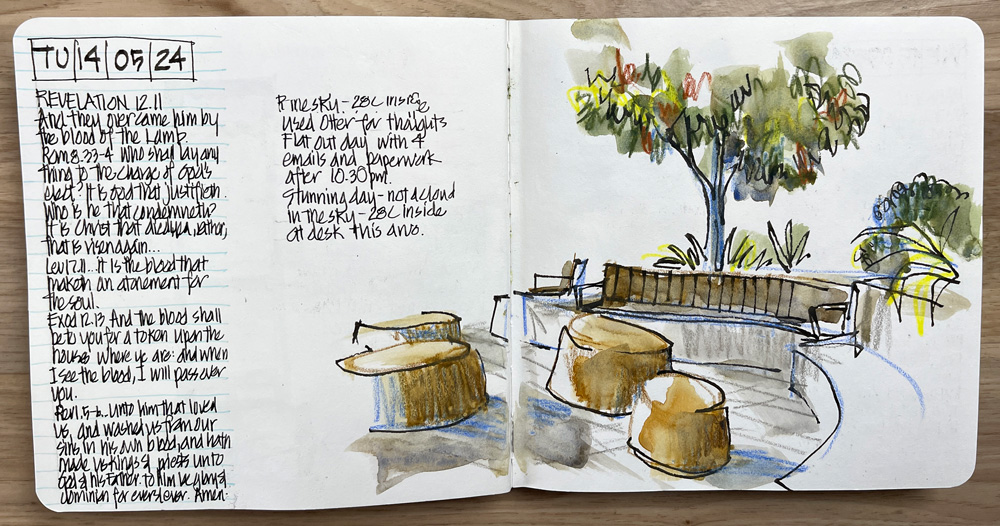 TU 14 05 24
REVELATION 12.11
And they overcame him by
the blood of the Lamb.
Rom 8.33-4 Who shall lay any
thing to the charge of God's
elect? It is God that justifieth.
Who is he that condemneth?
It is Christ that died, yea, rather,
that is risen again...
Lev 17.11... it is the blood that
maketh an atonement for
the soul.
Exod 12.13 And the blood shall
be to you for a token upon the
houses where ye are: and when
I see the blood, I will pass over
you.
Rev 1.5-6... Unto him that loved
us, and washed us from our
sins in his own blood, and hath
made us kings & priests unto
God & his Father; to him be glory &
dominion for ever & ever. Amen.
sky - 28C inside
Used Otter for thoughts
Flat out day with 4
emails and paperwork
after 10.30pm.
Stunning day - not a cloud
in the sky - 28C inside
at desk this arvo.